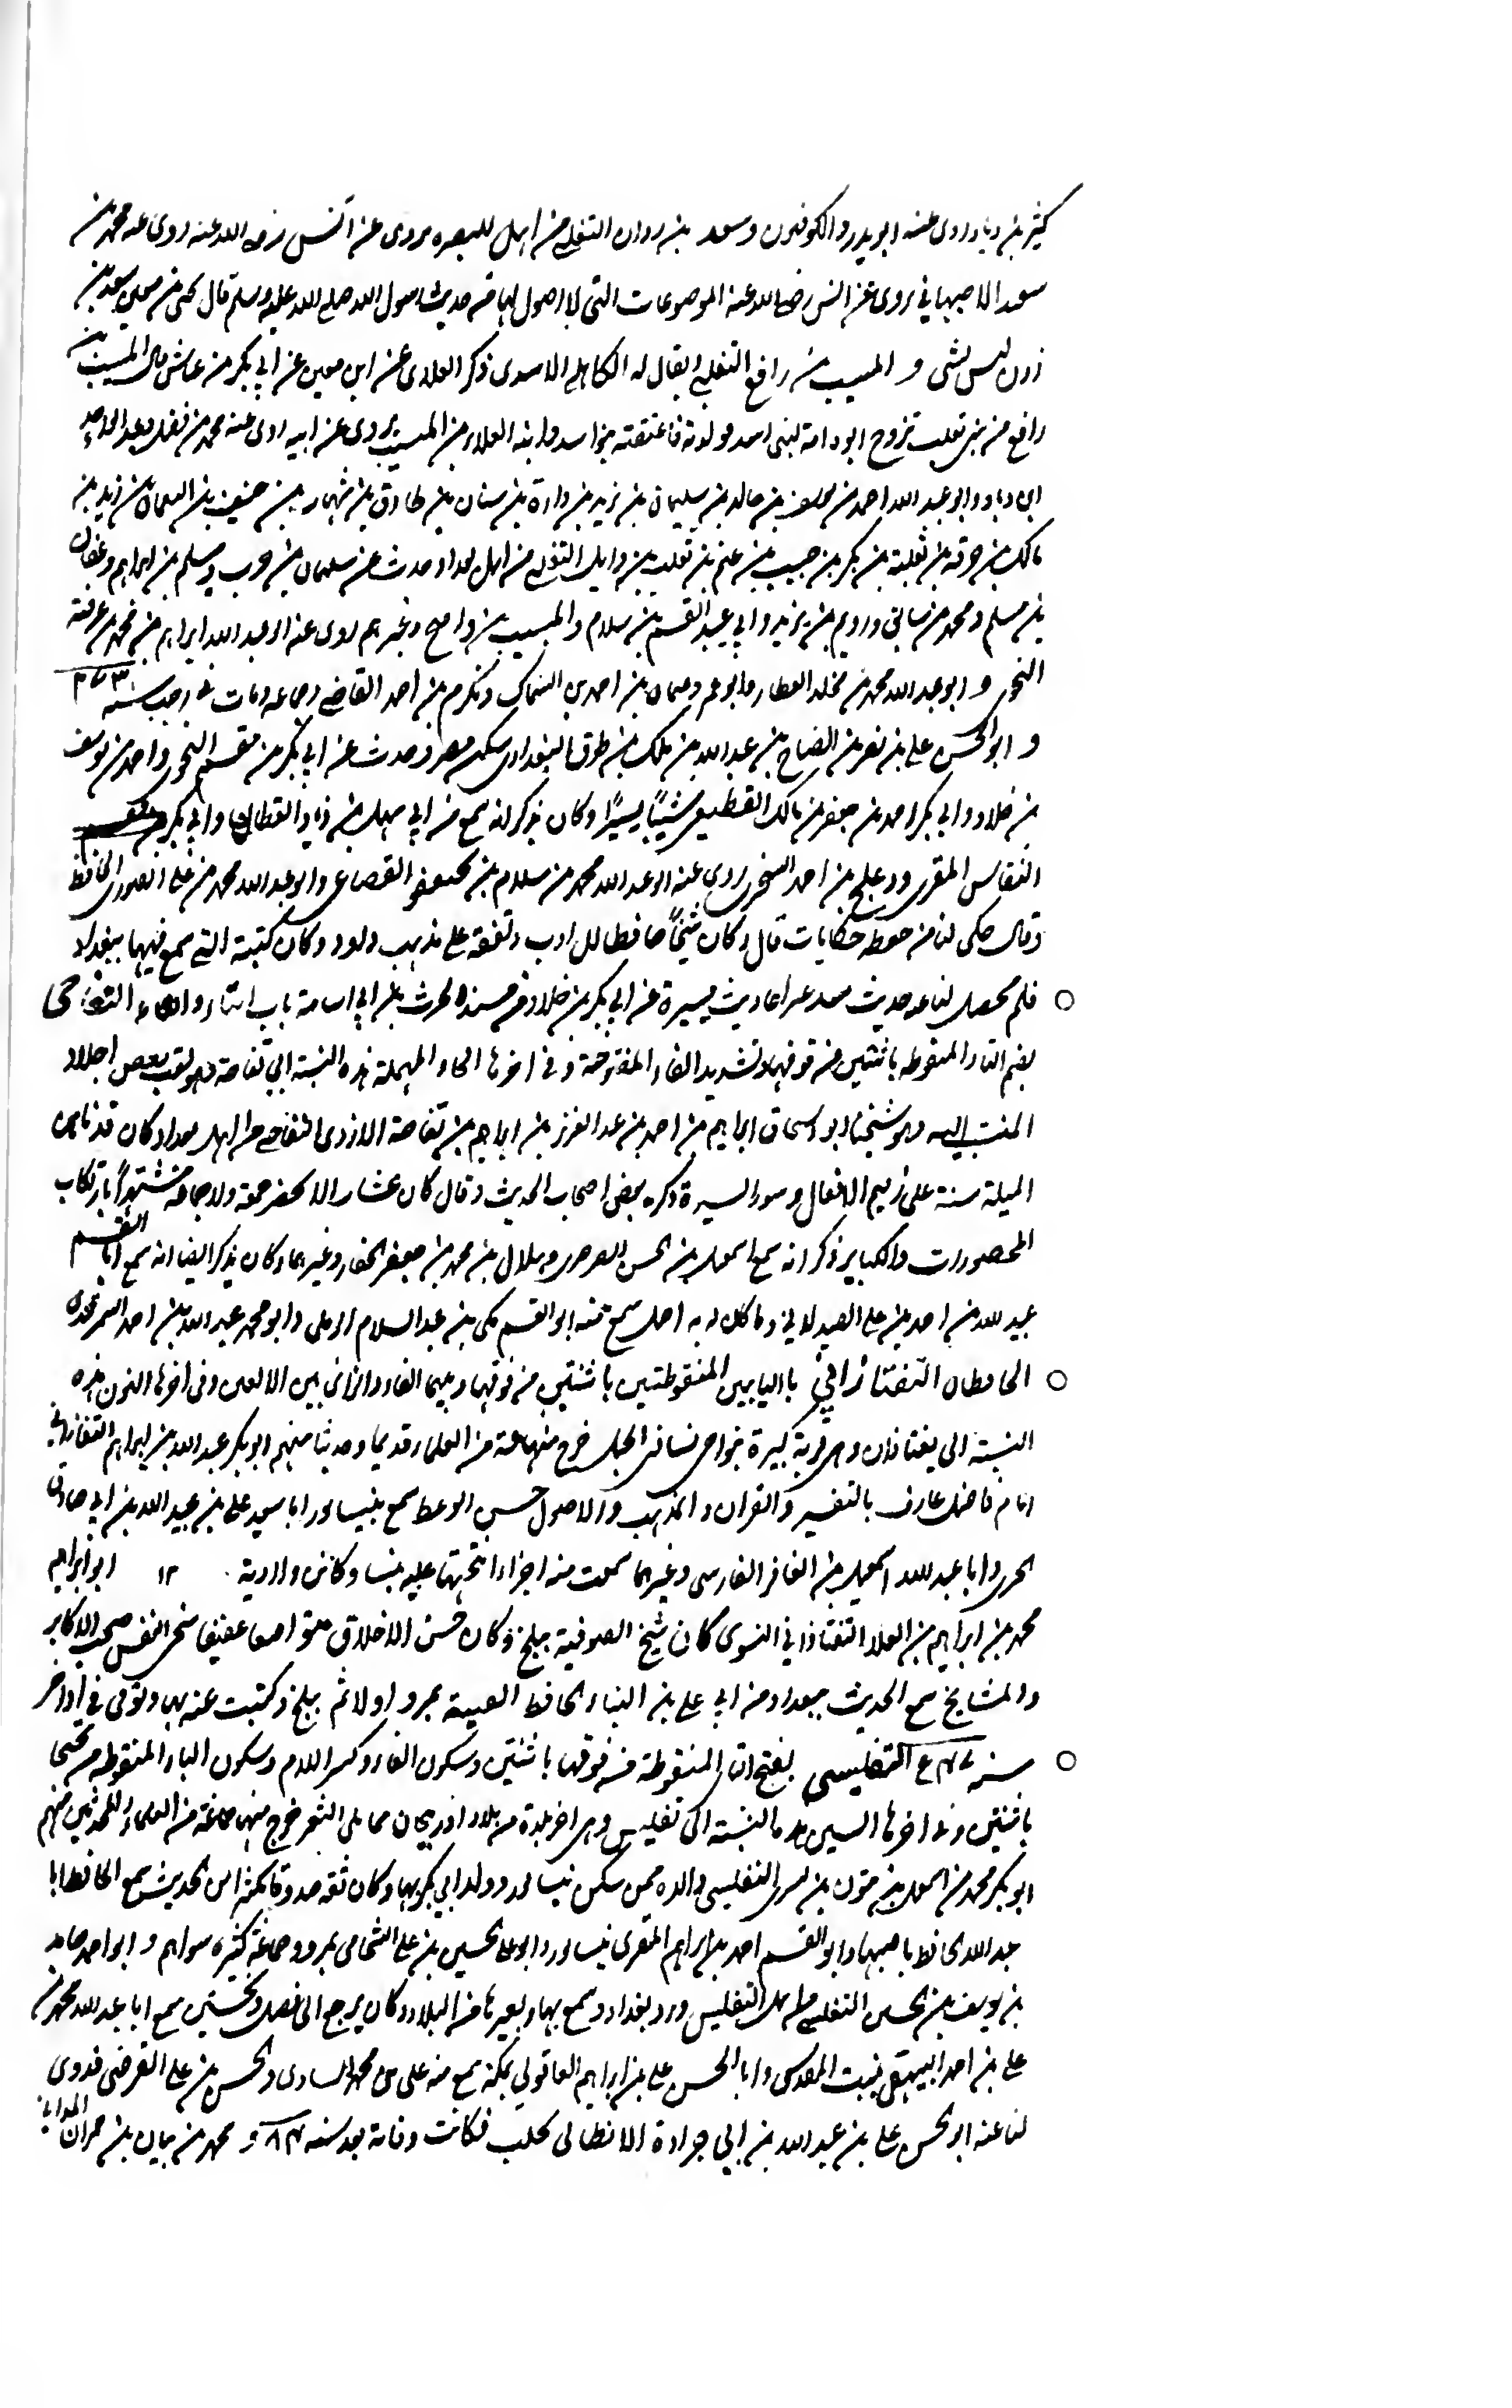 كثير بن دينار روى عنه ابو بدر والكوفيون وسعد بن رزان التغلبي من اهل البصرة يروى عن انس رضى الله عنه روى عنه محمد بن
سعد الاصبهاني يروى عن انس رضى الله عنه الموضوعات التى لا اصول لها من حديث رسول الله صلى الله عليه وسلم قال يحيى بن معين سعيد بن
زون ليس بشى و المسيب بن رافع التغلبي يقال له الكاهلي الاسدى ذكر الغلابى عن ابن معين عن ابي بكر بن عياش قال المسيب بن
رافع من بنى تغلب تزوج ابوه امة لبنى اسد فولدته فاعتقته بنو اسد وابنه العلاء بن المسيب يروى عن ابيه روى عنه محمد بن فضيل وعبد الواحد
ابن زياد وابو عبد الله احمد بن يوسف بن خالد بن سليمان بن يزيد بن دارة بن سنان بن طارق بن شهاب بن حنيف بن النعمان بن زيد بن
مالك بن حرقة بن ثعلبة بن بكر بن حبيب بن غنم بن تغلب بن وايل التغلبي من اهل بغداد حدث عن سليمان بن حرب ومسلم بن ابراهيم وعفان
بن مسلم ومحمد بن سابق ورويم بن يزيد وابي عبيد القسم بن سلام والمسيب بن واضح وغيرهم روى عنه ابو عبد الله ابراهيم بن محمد بن عرفة
النحوى و ابو عبد الله محمد بن مخلد العطار وابو عمرو عثمان بن احمد بن السماك ومكرم بن احمد القاضى وجماعة ومات فى رجب سنة ٢٧٣
و ابو الحسن علي بن نصر بن الصباح بن عبد الله بن ملك بن طوق البغدادى سكن مصر وحدث عن ابي بكر بن مقسم النحوى واحمد بن يوسف
بن خلاد وابي بكر احمد بن جعفر بن مالك القطيعى شيئًا يسيرًا وكان يذكر انه سمع من ابي سهل بن زياد القطان وابي بكر
النقاش المقرى ودعلج بن احمد السجزى روى عنه ابو عبد الله محمد بن سلامة بن جعفر القضاعى وابو عبد الله محمد بن علي الصورى الحافظ
وقال حكى لنا من حفظه حكايات قال وكان شيخًا حافظا للادب وتفقه على مذهب داود وكان كتبه التى سمع فيها ببغداد
فلم يحصل لنا عنه حديث سند غير احاديث يسيرة عن ابي بكر بن خلاد من مسند الحرث بن ابي اسامة باب التاء والفاء التفاحى
بضم التاء المنقوطه باثنتين من فوقها وتشديد الفاء المفتوحة وفى اخرها الحاء المهملة هذه النسبة الى تفاحة وهو لقب بعض اجداد
المنتسب اليه وهو شيخنا ابو اسحاق ابراهيم بن احمد بن عبد العزيز بن ابراهيم بن تفاحة الازدى التفاحى من اهل بغداد كان قد ناهز
المية سنة على ذميم الافعال وسوء السيرة ذكره بعض اصحاب الحديث وقال كان عشارا لا يحضر جمعة ولا جماعة مشتهرًا بارتكاب
المحظورات والكباير ذكر انه سمع اسمعيل بن الحسن الصرصرى وهلال بن محمد بن جعفر الحفار وغيرهما وكان يذكر ايضا انه سمع ابا القسم
عبيد الله بن احمد بن علي الصيدلاني وما كان له به اصل سمع منه ابو القسم مكى بن عبد السلام الرملى وابو محمد عبد الله بن احمد السمرقندى
الحافظان التفتازاني بالتايين المنقوطتين باثنتين من فوقها وبينهما الفاء والزاى بين الالفين وفى اخرها النون هذه
النسبة الى تفتازان وهى قرية كبيرة بنواحى نسا فى الجبل خرج منها جماعة من العلماء قديما وحديثا منهم ابو بكر عبد الله بن ابراهيم التفتازانى
امام فاضل عارف بالتفسير والقران والمذهب والاصول حسن الوعظ سمع بنيسابور ابا سعيد علي بن عبيد الله بن ابي صادق
الحيرى وابا عبد الله اسمعيل بن الغافر الفارسى وغيرهما سمعت منه اجزاء انتخبتها عليه بنسا وكانت ولادته ١٢ ابو ابراهيم
محمد بن ابراهيم بن العلا التفتازاني النسوى كان شيخ الصوفية ببلخ وكان حسن الاخلاق متواضعا عفيفا سخى النفس صحب الاكابر
والمشايخ سمع الحديث ببغداد من ابي علي بن البناء الحافظ لقيته بمرو اولا ثم ببلخ وكتبت عنه بها وتوفى فى اواخر
سنة التفليسي بفتح التاء المنقوطة من فوقها باثنتين وسكون الفاء وكسر اللام وسكون الياء المنقوطه من تحتها
باثنتين وفى اخرها السين هذه النسبة الى تفليس وهى اخر بلدة من بلاد اذربيجان مما يلى الثغر خرج منها جماعة من العلماء والمحدثين منهم
ابو بكر محمد بن اسمعيل بن بنون بن السرى التفليسى والده ممن سكن نيسابور وولد ابي بكر بها وكان ثقة صدوقا يكثر من الحديث سمع الحافظ ابا
عبد الله الحافظ باصبهان وابو القسم احمد بن ابراهيم المقرى بنيسابور وابو علي الحسين بن علي الشحامى بمرو وجماعة كثيرة سواهم و ابو احمد حامد
بن يوسف بن الحسين التفليسى من اهل التفليس ورد بغداد وسمع بها وبغيرها من البلاد وكان يرجع الى فضل وتحسين سمع ابا عبد الله محمد بن
علي بن احمد البيهقى ببيت المقدس وابا الحسن علي بن ابراهيم العاقولي بمكة سمع منه على بن محمد الساوى والحسن بن على القرضى فروى
لنا عنه ابو الحسن علي بن عبد الله بن ابي جرادة الانطاكى بحلب فكانت وفاته بعد سنه ٤٨٣ و محمد بن بيان بن حمران المدايني